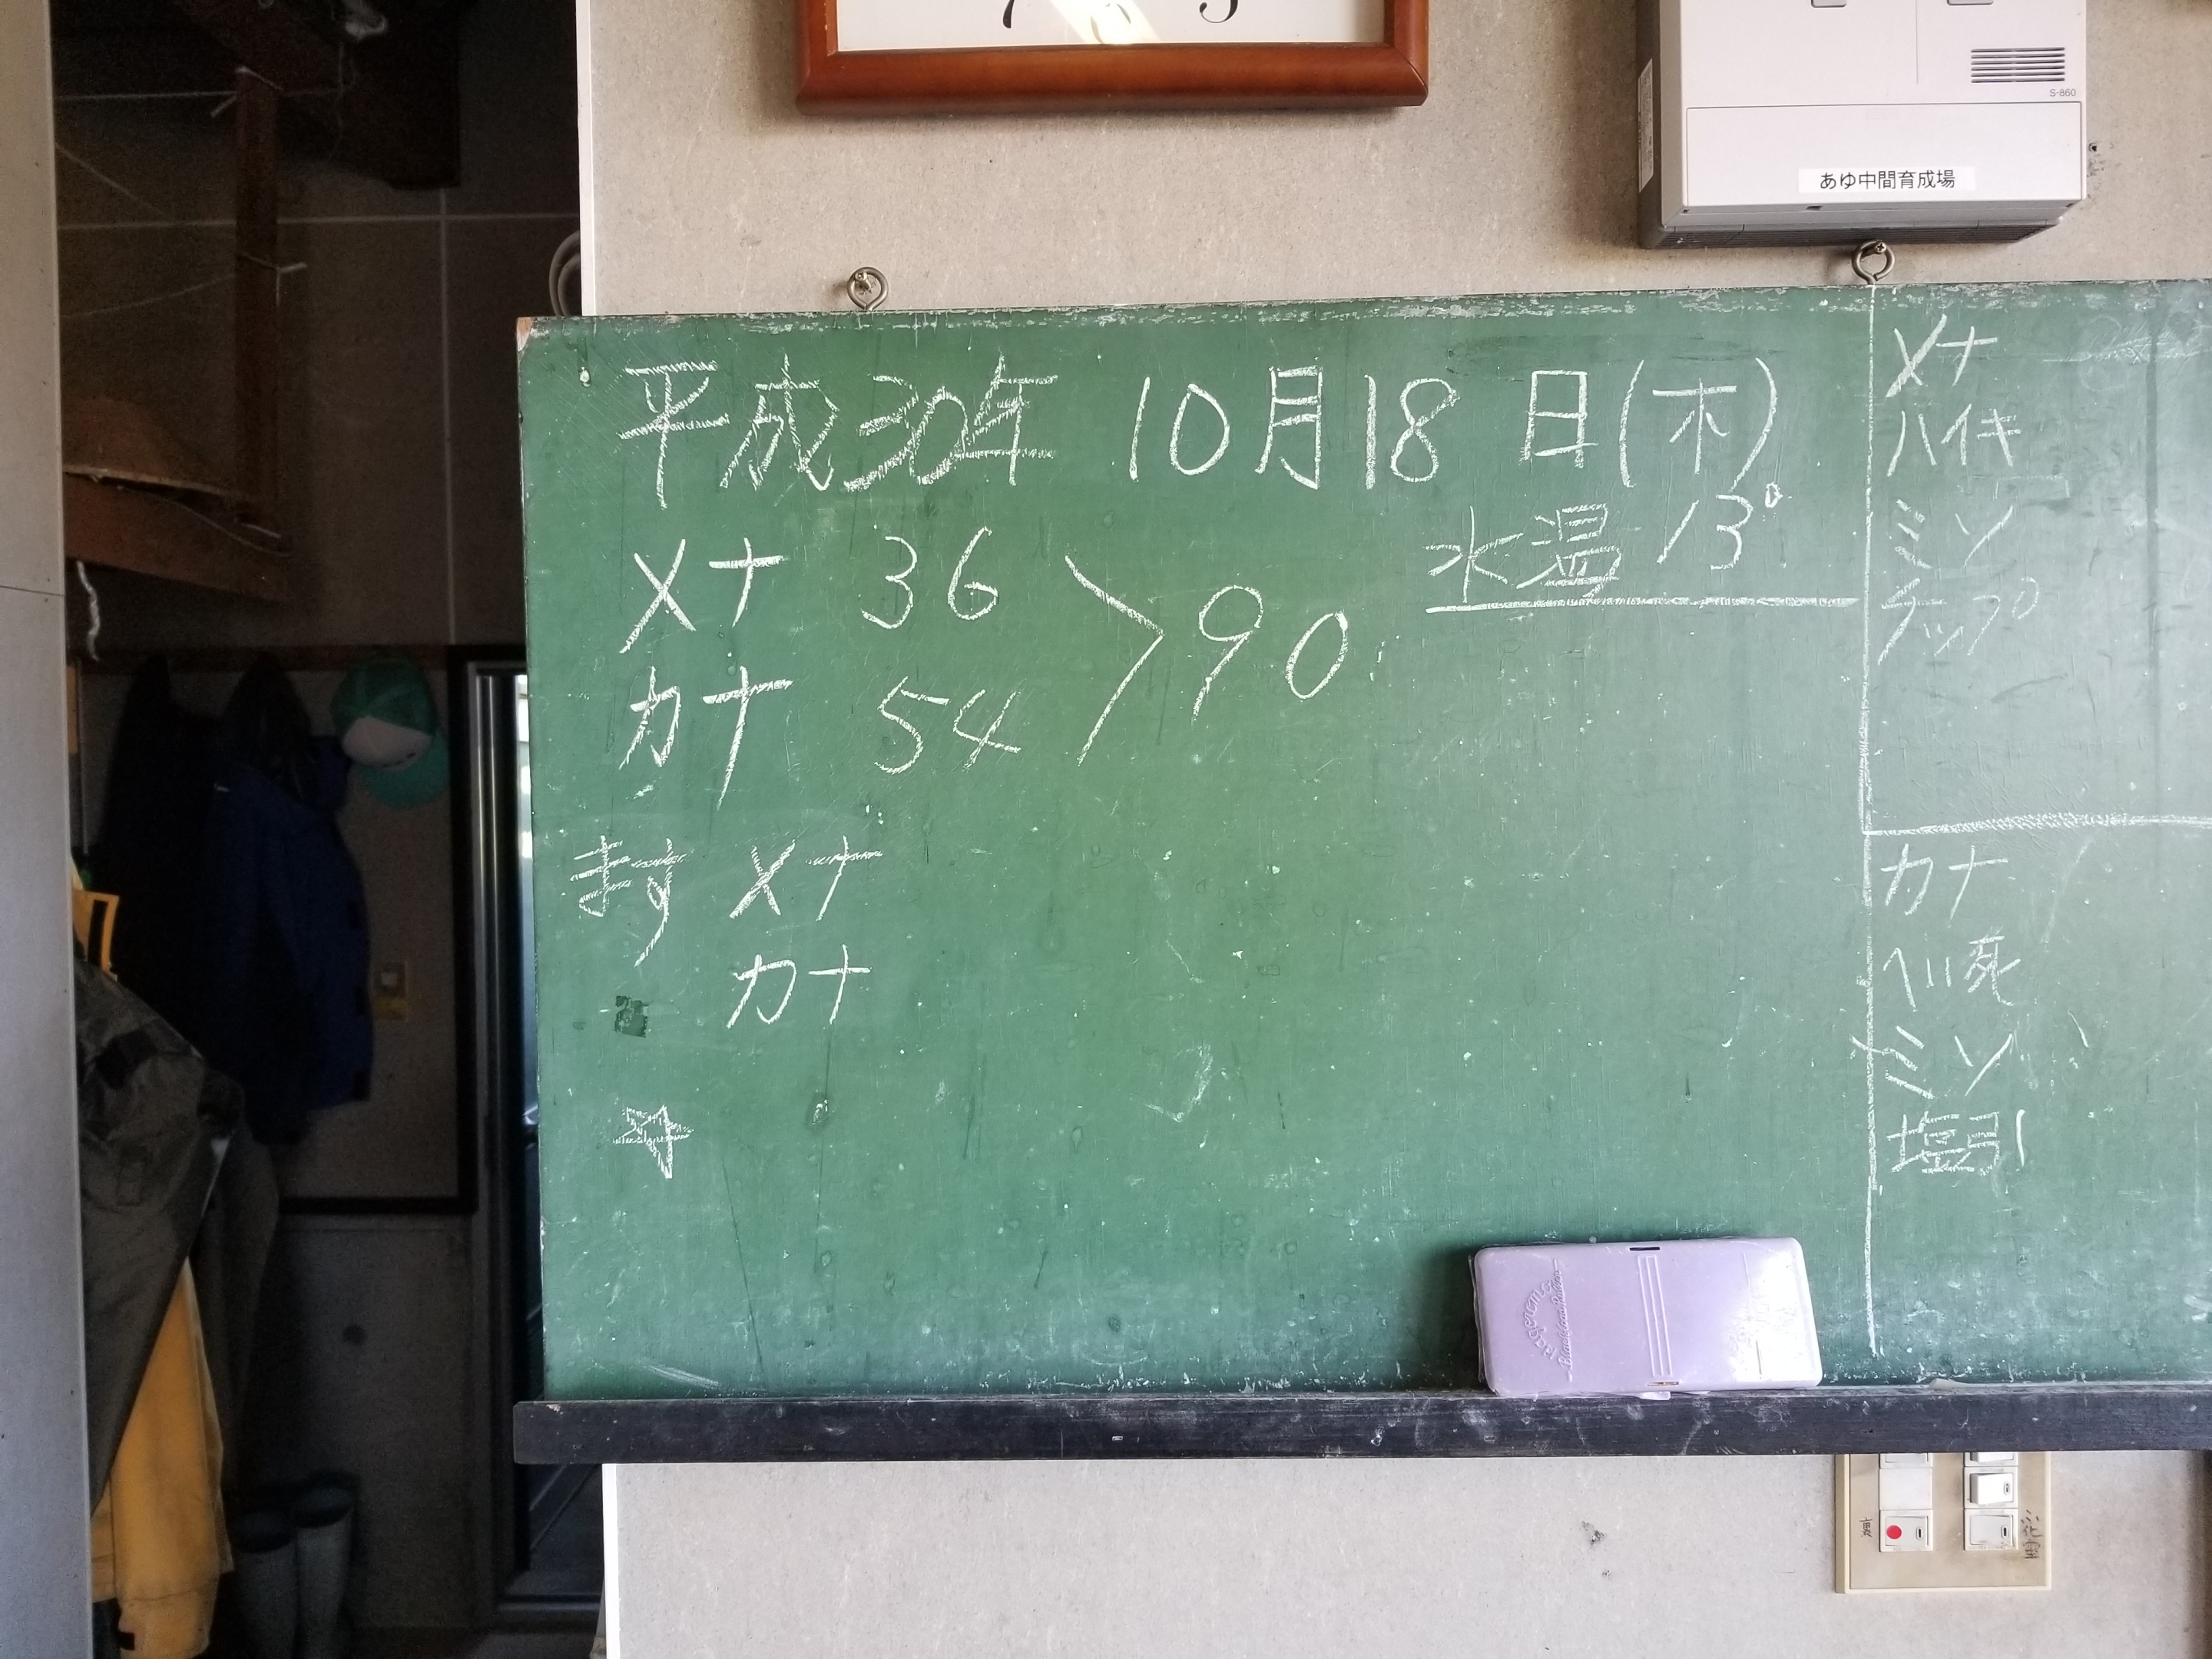 S-860
あゆ中間育成場
平成30年 10月18日(木)
水温 13°
メナ 36
カナ 54
> 90
ます メナ
カナ
メナ
ハイキ
ミソ
チップ
カナ
ヘい死
ミソ
塩引